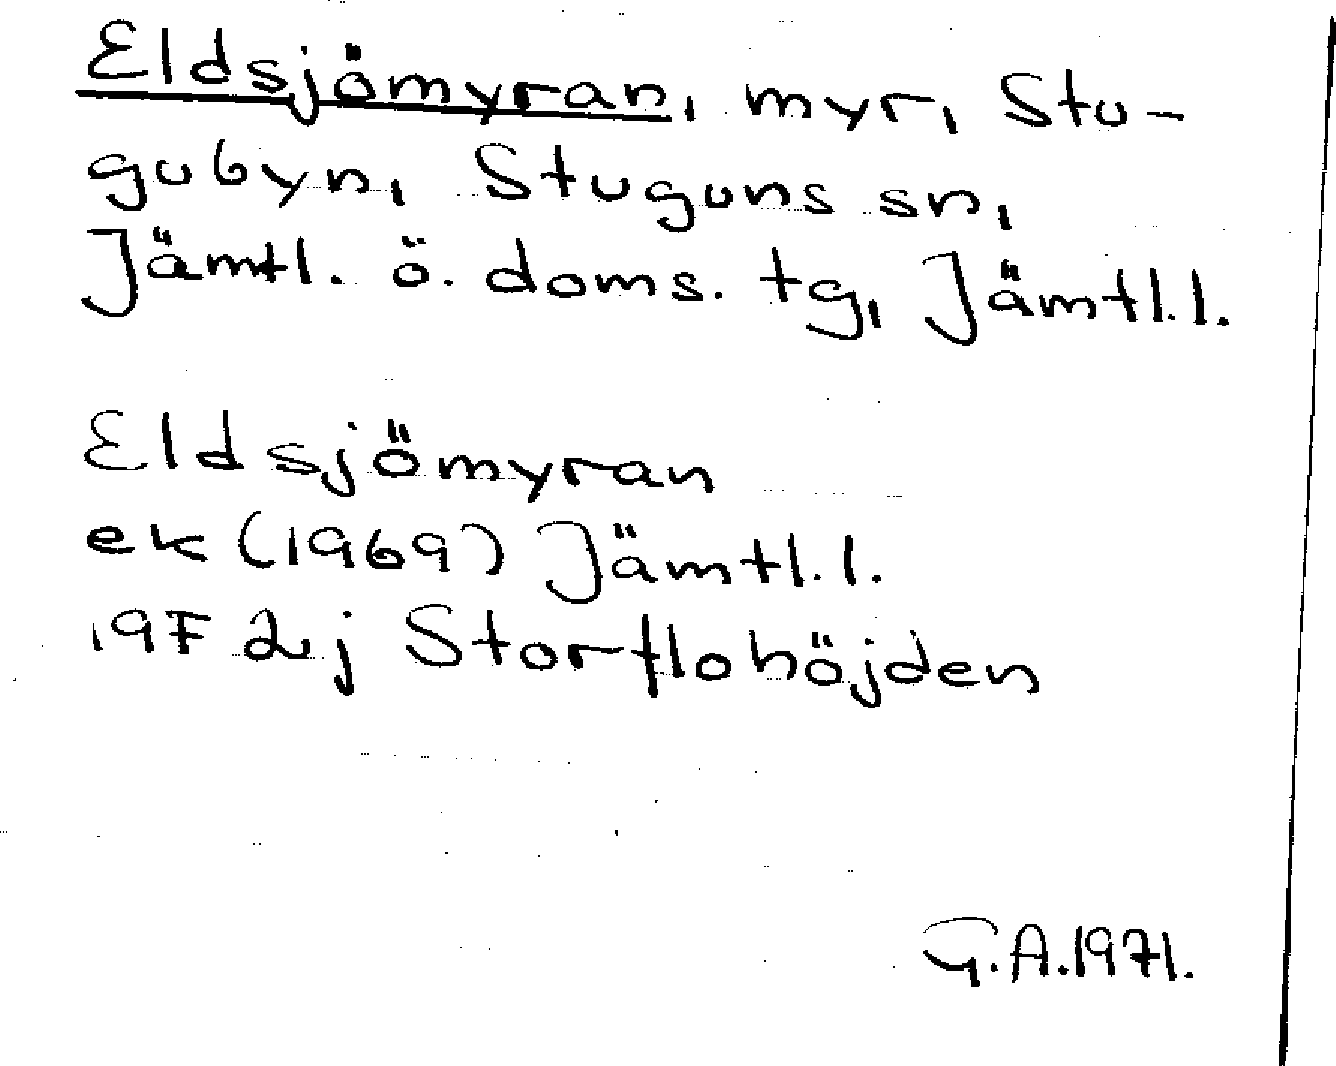 Eldsjömyran, myr, Stu-
gubyn, Stuguns sn,
Jämtl. ö. doms. tg, Jämtl.l.
Eldsjömyran
ek (1969) Jämtl.l.
19F 2j Storflohöjden
G.A.1971.